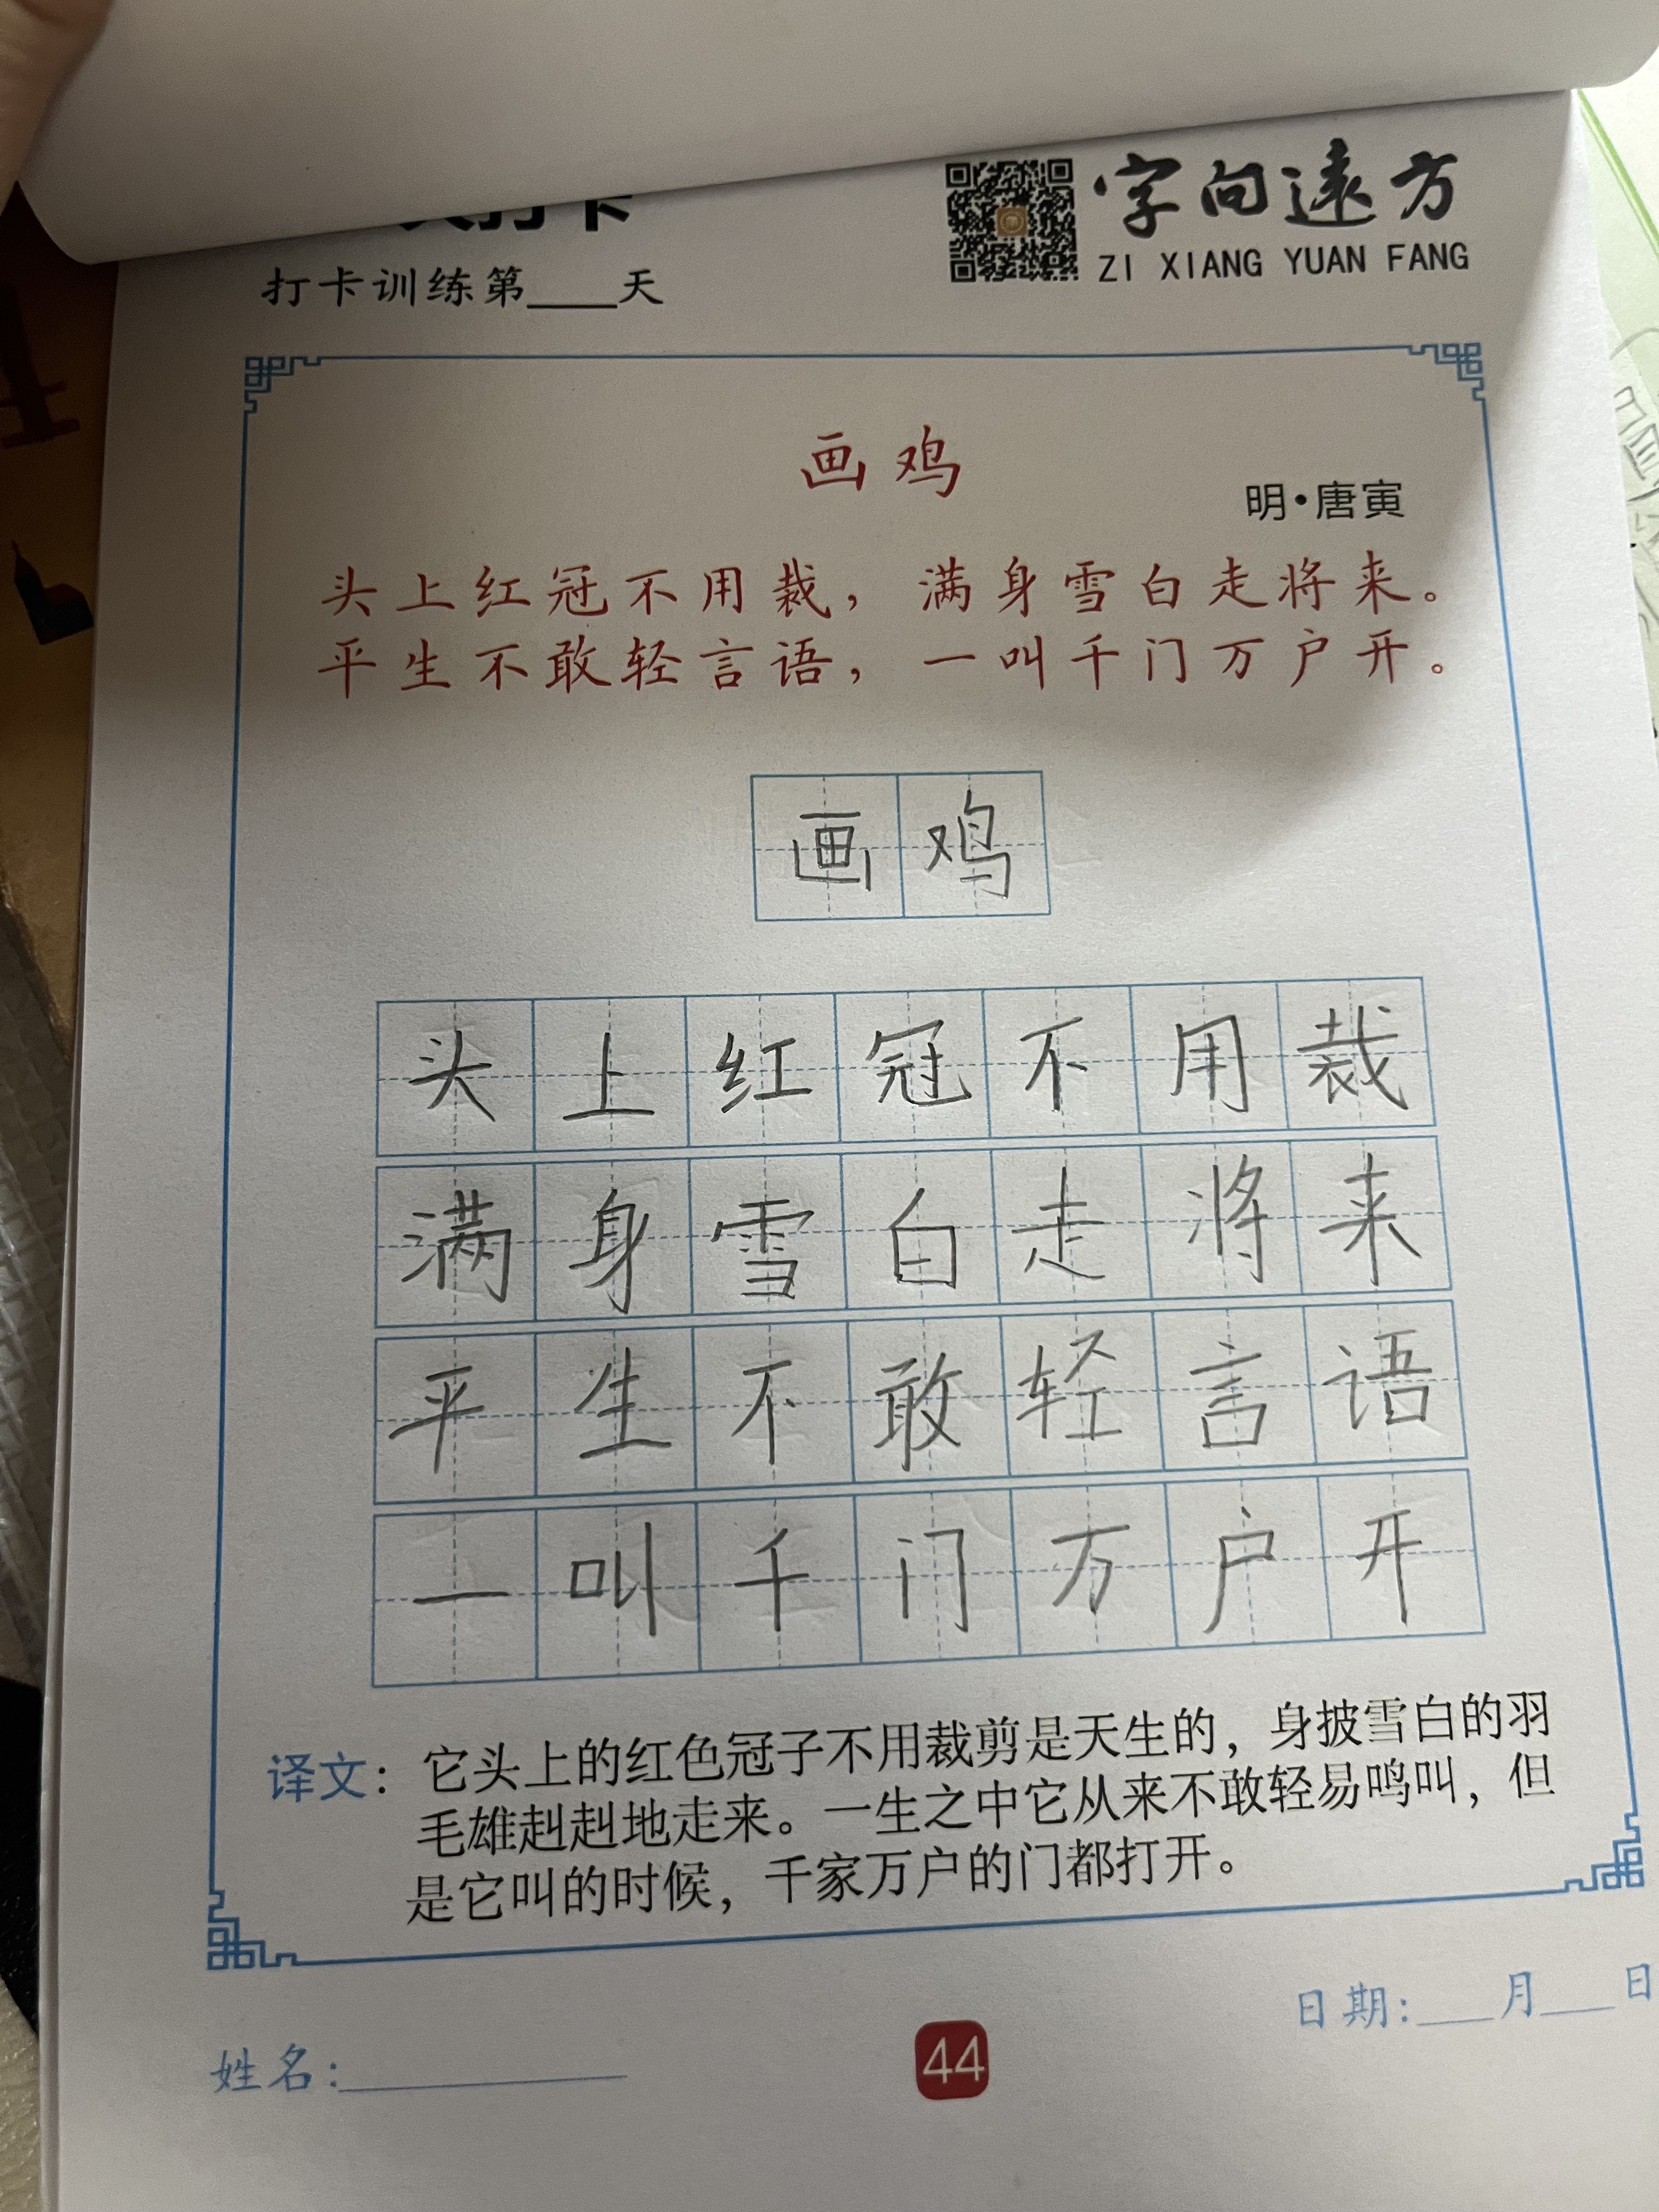 打卡
打卡训练第____天
字向遠方
ZI XIANG YUAN FANG
画鸡
明·唐寅
头上红冠不用裁，满身雪白走将来。
平生不敢轻言语，一叫千门万户开。
画鸡
头上红冠不用裁
满身雪白走将来
平生不敢轻言语
一叫千门万户开
译文：它头上的红色冠子不用裁剪是天生的，身披雪白的羽
毛雄赳赳地走来。一生之中它从来不敢轻易鸣叫，但
是它叫的时候，千家万户的门都打开。
日期:___月___日
姓名:____________
44